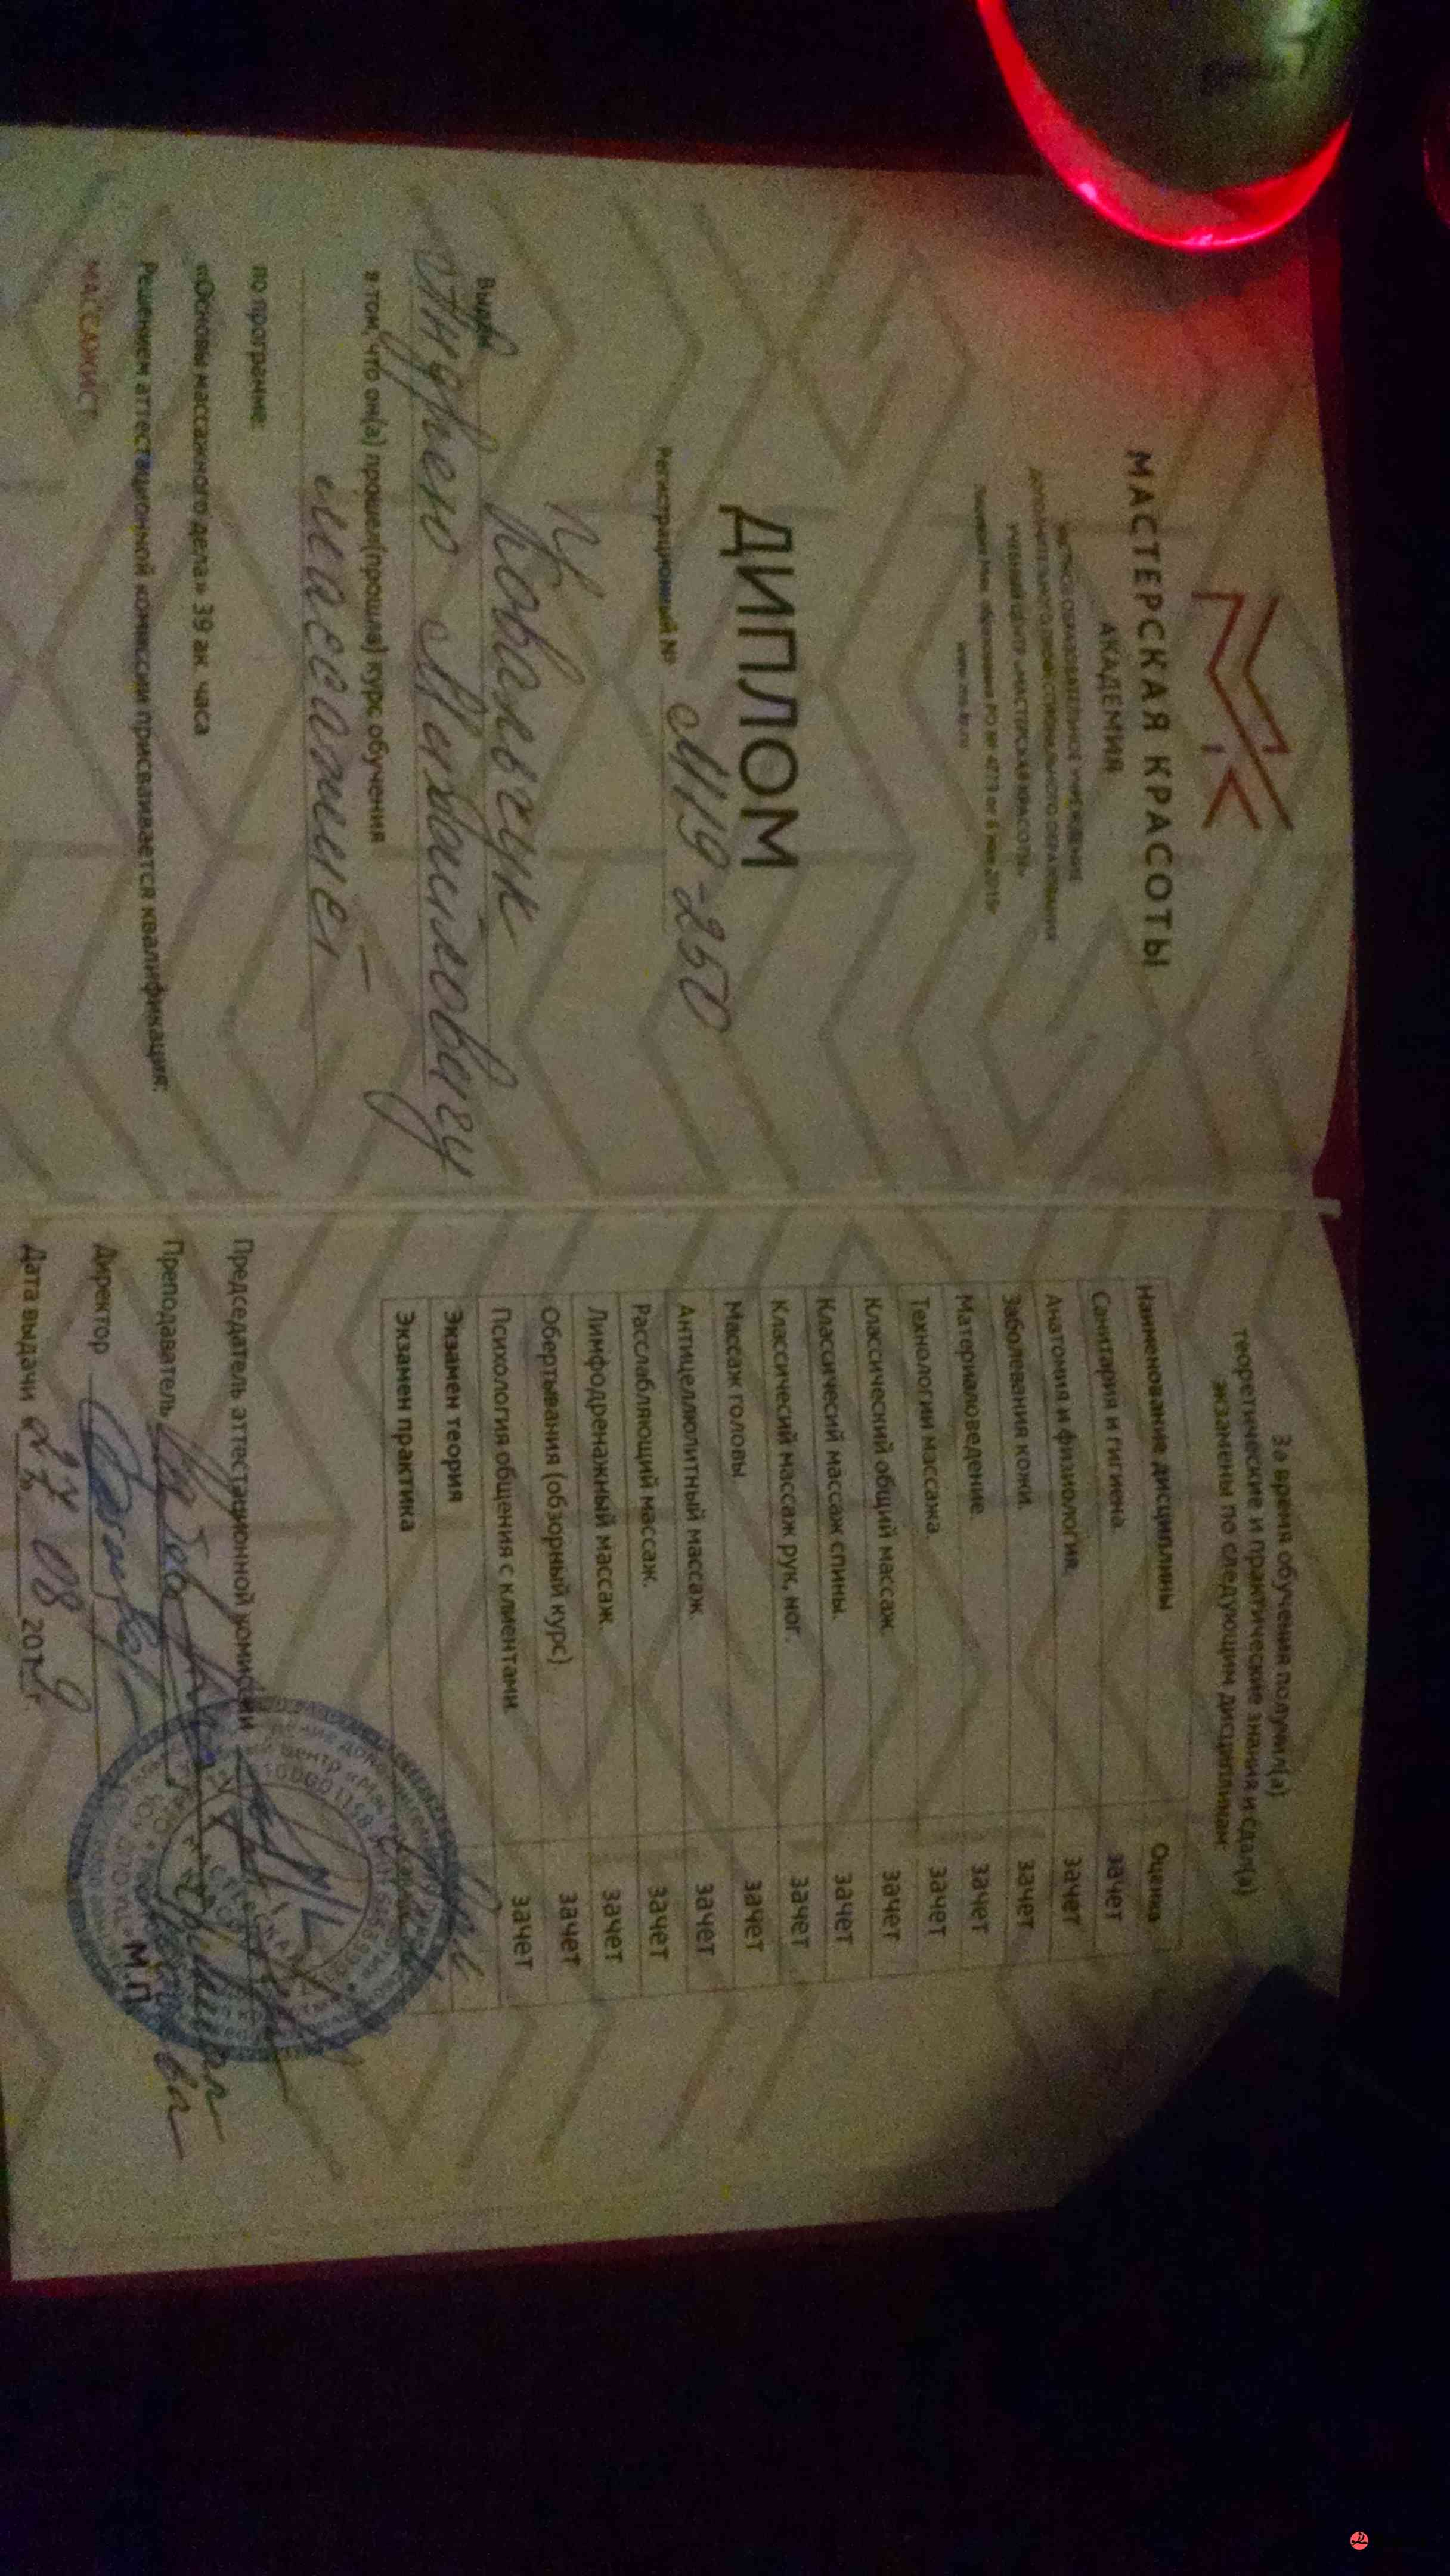 МАСТЕРСКАЯ КРАСОТЫ
АКАДЕМИЯ
ЧАСТНОЕ ОБРАЗОВАТЕЛЬНОЕ УЧРЕЖДЕНИЕ
ДОПОЛНИТЕЛЬНОГО ПРОФЕССИОНАЛЬНОГО ОБРАЗОВАНИЯ
УЧЕБНЫЙ ЦЕНТР «МАСТЕРСКАЯ КРАСОТЫ»
ДИПЛОМ
Регистрационный № М119-250
Выдан Ковальчук
Андрею Михайловичу
в том, что он(а) прошел(прошла) курс обучения
массажист
по програмне:
«Основы массажного дела» 39 ак. часа
Решением аттестационной комиссии присваивается квалификация:
МАССАЖИСТ
За время обучения получил(а)
теоретические и практические знания и сдал(а)
экзамены по следующим дисциплинам:
Наименование дисциплины Оценка
Санитария и гигиена зачет
Анатомия и физиология. зачет
Заболевания кожи. зачет
Материаловедение. зачет
Технологии массажа. зачет
Классический общий массаж. зачет
Классичесий массаж спины. зачет
Классичесий массаж рук, ног. зачет
Массаж головы. зачет
Антицеллюлитный массаж. зачет
Расслабляющий массаж. зачет
Лимфодренажный массаж. зачет
Обертывания (обзорный курс). зачет
Психология общения с клиентами. зачет
Экзамен теория
Экзамен практика
Председатель аттестационной комиссии
Преподаватель
Директор
М.П.
Дата выдачи «27» 08 2019 г.